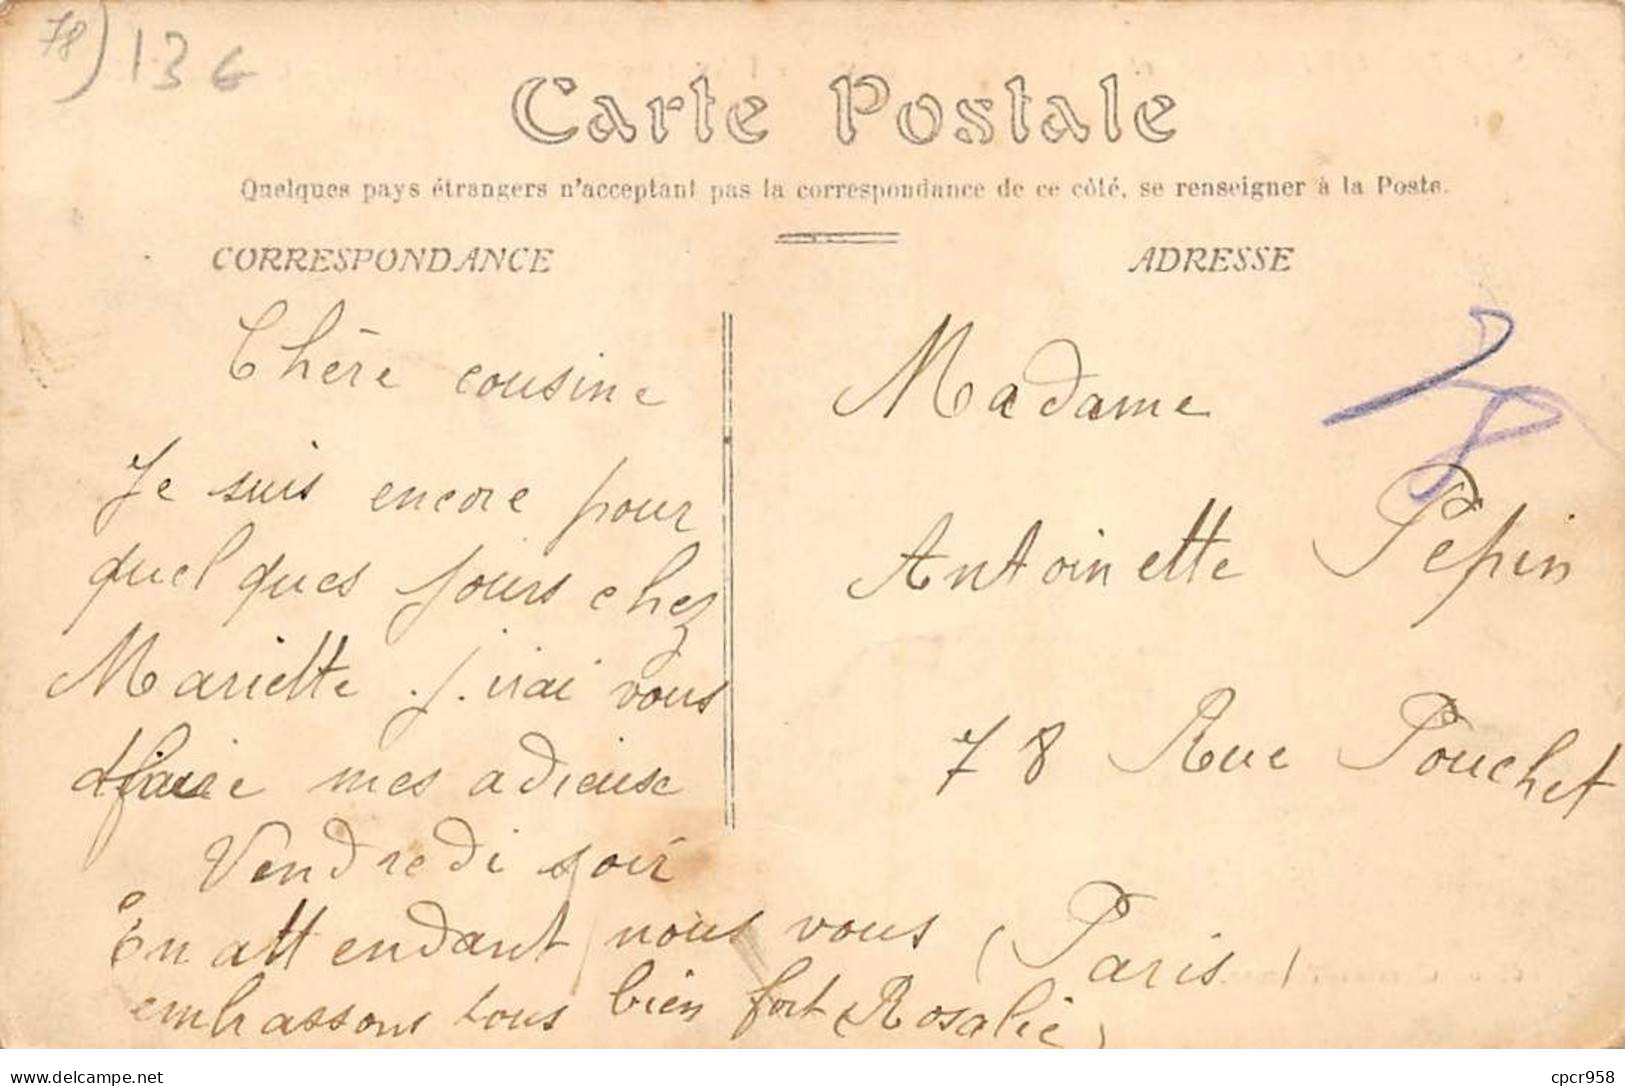 78) 136
Carte Postale
Quelques pays étrangers n'acceptant pas la correspondance de ce côté, se renseigner à la Poste.
CORRESPONDANCE
Chère cousine
Je suis encore pour
quelques jours chez
Mariette . j. irai vous
faire mes adieuse
Vendredi soir
En attendant nous vous
embrassons tous bien fort Rosalie
ADRESSE
Madame
Antoinette Pepin
78 Rue Pouchet
(Paris)
Delcampe.net
cpcr958